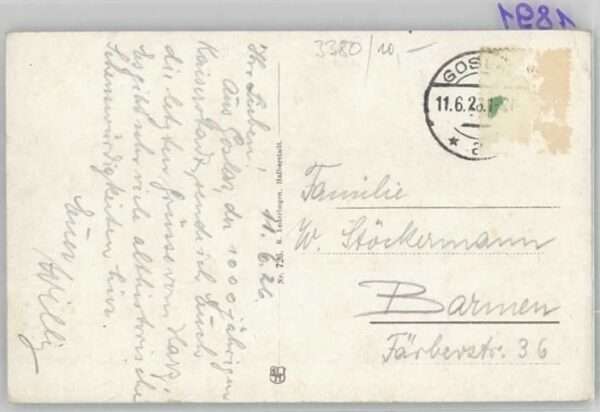 1891
3380/10,-
GOSL
11.6.26.1
a
11.6.26.
Ihr Lieben!
Aus Goslar, der 1000 jährigen
Kaiserstadt, sende ich Euch
die letzten Grüsse vom Harz.
Es gibt sehr viele althistorische
Sehenswürdigkeiten hier.
Euer Willy
Nr. 726. R. Lederbogen, Halberstadt.
Familie
W. Stöckermann
Barmen
Färberstr. 36